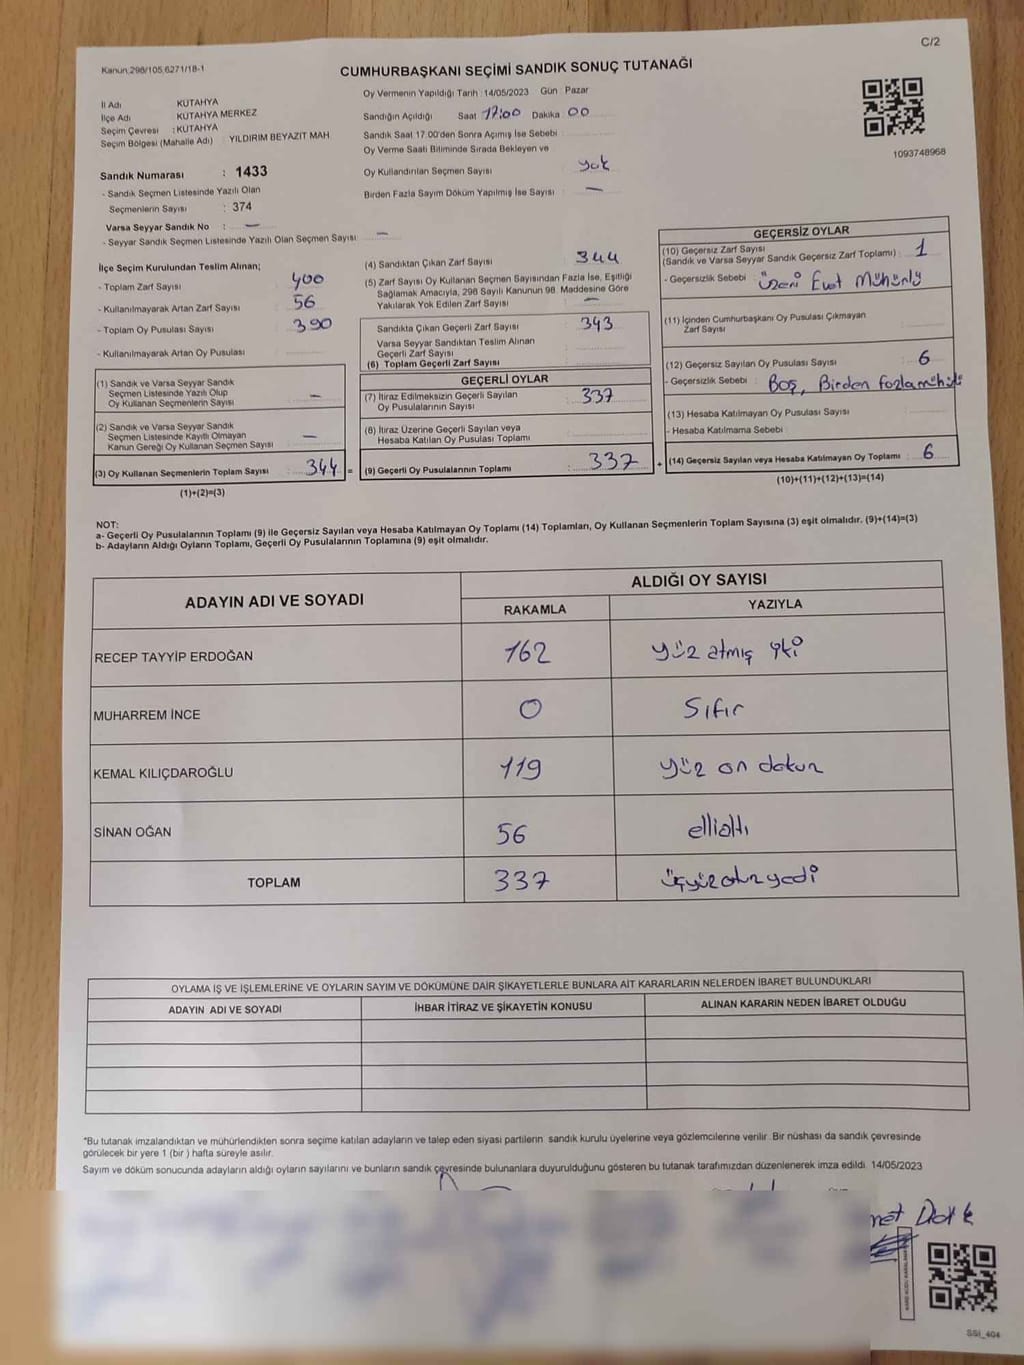 C/2
Kanun,298/105,6271/18-1
CUMHURBAŞKANI SEÇİMİ SANDIK SONUÇ TUTANAĞI
İl Adı KUTAHYA
İlçe Adı KUTAHYA MERKEZ
Seçim Çevresi : KUTAHYA
Seçim Bölgesi (Mahalle Adı) : YILDIRIM BEYAZIT MAH
Sandık Numarası : 1433
- Sandık Seçmen Listesinde Yazılı Olan
Seçmenlerin Sayısı : 374
Varsa Seyyar Sandık No : —
- Seyyar Sandık Seçmen Listesinde Yazılı Olan Seçmen Sayısı : —
Oy Vermenin Yapıldığı Tarih : 14/05/2023 Gün : Pazar
Sandığın Açıldığı Saat 17:00 Dakika 00
Sandık Saat 17.00'den Sonra Açımış İse Sebebi :
Oy Verme Saati Bitiminde Sırada Bekleyen ve
Oy Kullandırılan Seçmen Sayısı : yok
Birden Fazla Sayım Döküm Yapılmış İse Sayısı : —
1093748968
İlçe Seçim Kurulundan Teslim Alınan;
- Toplam Zarf Sayısı : 400
- Kullanılmayarak Artan Zarf Sayısı : 56
- Toplam Oy Pusulası Sayısı : 390
- Kullanılmayarak Artan Oy Pusulası
(1) Sandık ve Varsa Seyyar Sandık
Seçmen Listesinde Yazılı Olup
Oy Kullanan Seçmenlerin Sayısı : —
(2) Sandık ve Varsa Seyyar Sandık
Seçmen Listesinde Kayıtlı Olmayan
Kanun Gereği Oy Kullanan Seçmen Sayısı : —
(3) Oy Kullanan Seçmenlerin Toplam Sayısı : 344 =
(1)+(2)=(3)
(4) Sandıktan Çıkan Zarf Sayısı : 344
(5) Zarf Sayısı Oy Kullanan Seçmen Sayısından Fazla İse, Eşitliği
Sağlamak Amacıyla, 298 Sayılı Kanunun 98. Maddesine Göre
Yakılarak Yok Edilen Zarf Sayısı : —
Sandıkta Çıkan Geçerli Zarf Sayısı : 343
Varsa Seyyar Sandıktan Teslim Alınan
Geçerli Zarf Sayısı :
(6) Toplam Geçerli Zarf Sayısı :
GEÇERLİ OYLAR
(7) İtiraz Edilmeksizin Geçerli Sayılan
Oy Pusulalarının Sayısı : 337
(8) İtiraz Üzerine Geçerli Sayılan veya
Hesaba Katılan Oy Pusulası Toplamı :
(9) Geçerli Oy Pusulalarının Toplamı : 337 +
GEÇERSİZ OYLAR
(10) Geçersiz Zarf Sayısı
(Sandık ve Varsa Seyyar Sandık Geçersiz Zarf Toplamı) : 1
- Geçersizlik Sebebi : Üzeri Evet Mühürlü
(11) İçinden Cumhurbaşkanı Oy Pusulası Çıkmayan
Zarf Sayısı
(12) Geçersiz Sayılan Oy Pusulası Sayısı : 6
- Geçersizlik Sebebi : Boş, Birden fazla mühür
(13) Hesaba Katılmayan Oy Pusulası Sayısı
- Hesaba Katılmama Sebebi :
(14) Geçersiz Sayılan veya Hesaba Katılmayan Oy Toplamı : 6
(10)+(11)+(12)+(13)=(14)
NOT:
a- Geçerli Oy Pusulalarının Toplamı (9) ile Geçersiz Sayılan veya Hesaba Katılmayan Oy Toplamı (14) Toplamları, Oy Kullanan Seçmenlerin Toplam Sayısına (3) eşit olmalıdır. (9)+(14)=(3)
b- Adayların Aldığı Oyların Toplamı, Geçerli Oy Pusulalarının Toplamına (9) eşit olmalıdır.
ADAYIN ADI VE SOYADI
ALDIĞI OY SAYISI
RAKAMLA YAZIYLA
RECEP TAYYİP ERDOĞAN 162 yüz atmış iki
MUHARREM İNCE 0 Sıfır
KEMAL KILIÇDAROĞLU 119 yüz on dokuz
SİNAN OĞAN 56 ellialtı
TOPLAM 337 üçyüzotuzyedi
OYLAMA İŞ VE İŞLEMLERİNE VE OYLARIN SAYIM VE DÖKÜMÜNE DAİR ŞİKAYETLERLE BUNLARA AİT KARARLARIN NELERDEN İBARET BULUNDUKLARI
ADAYIN ADI VE SOYADI İHBAR İTİRAZ VE ŞİKAYETİN KONUSU ALINAN KARARIN NEDEN İBARET OLDUĞU
*Bu tutanak imzalandıktan ve mühürlendikten sonra seçime katılan adayların ve talep eden siyasi partilerin sandık kurulu üyelerine veya gözlemcilerine verilir. Bir nüshası da sandık çevresinde
görülecek bir yere 1 (bir) hafta süreyle asılır.
Sayım ve döküm sonucunda adayların aldığı oyların sayılarını ve bunların sandık çevresinde bulunanlara duyurulduğunu gösteren bu tutanak tarafımızdan düzenlenerek imza edildi. 14/05/2023
SSI_404